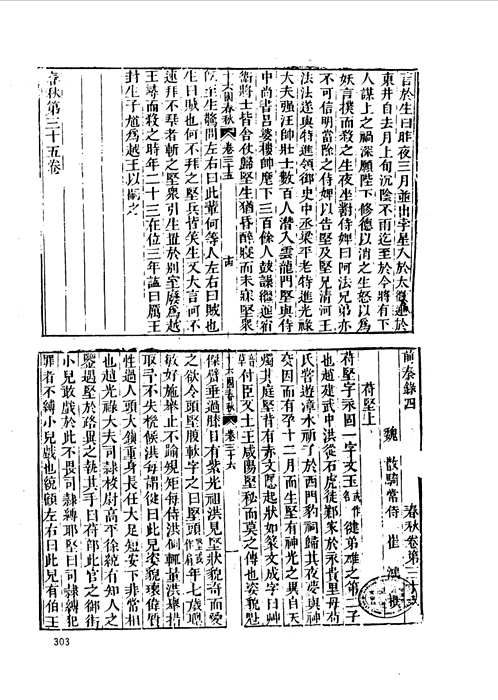 言於生曰昨夜三月並出孛星入於太微遂於
東井自去月上旬沉陰不雨迄至於今將有下
人謀上之禍深願陛下修德以消之生怒以為
妖言撲而殺之生夜坐對侍婢曰阿法兄弟亦
不可信明當除之侍婢以告堅及堅兄清河王
法法遂與特進領御史中丞梁平老特進光祿
大夫强汪帥壯士數百人潛入雲龍門堅與侍
中尚書呂婆樓帥麾下三百餘人鼓譟繼進宿
衛將士皆舍仗歸堅生猶昏醉寢而未寤堅衆
十六國春秋 卷三十五 古
至生驚問左右曰此輩何等人左右曰賊也
生曰賊也何不拜之堅兵皆笑生又大言何不
速拜不拜者斬之堅衆引生置於別室廢為越
王尋而殺之時年二十三在位三年諡曰厲王
封生子馗為越王以嗣之
春秋第三十五卷
前秦錄四 春秋卷第三十六
魏 散騎常侍 崔 鴻 撰
苻堅上
苻堅字永固一字文玉 雄之第二子
也趙建武中洪從石虎徙鄴家於永貴里母苟
氏嘗遊漳水祈子於西門豹祠歸其夜夢與神
交因而有孕十二月而生堅有神光之異自天
燭其庭堅背有赤文隱起狀如篆文成字曰艸
付臣又土王咸陽堅祕而莫之傳也姿貌魁
十六國春秋 卷三十六
保臂垂過膝目有紫光祖洪見堅狀貌奇而愛
之欲令頭堅腹軟字之曰堅頭 年七歲聰
敏好施舉止不踰規矩每侍洪側輒量洪舉措
取予不失機候洪每謂健曰此兒姿貌瓌偉質
性過人頭大頷重身長任大足短安下非常相
也趙光祿大夫司隸校尉高平徐統有知人之
鑒遇堅於路異之執其手曰苻郎此官之御街
小兒敢戲於此不畏司隸縛耶堅曰司隸縛犯
罪者不縛小兒戲也統顧左右曰此兒有伯王
303